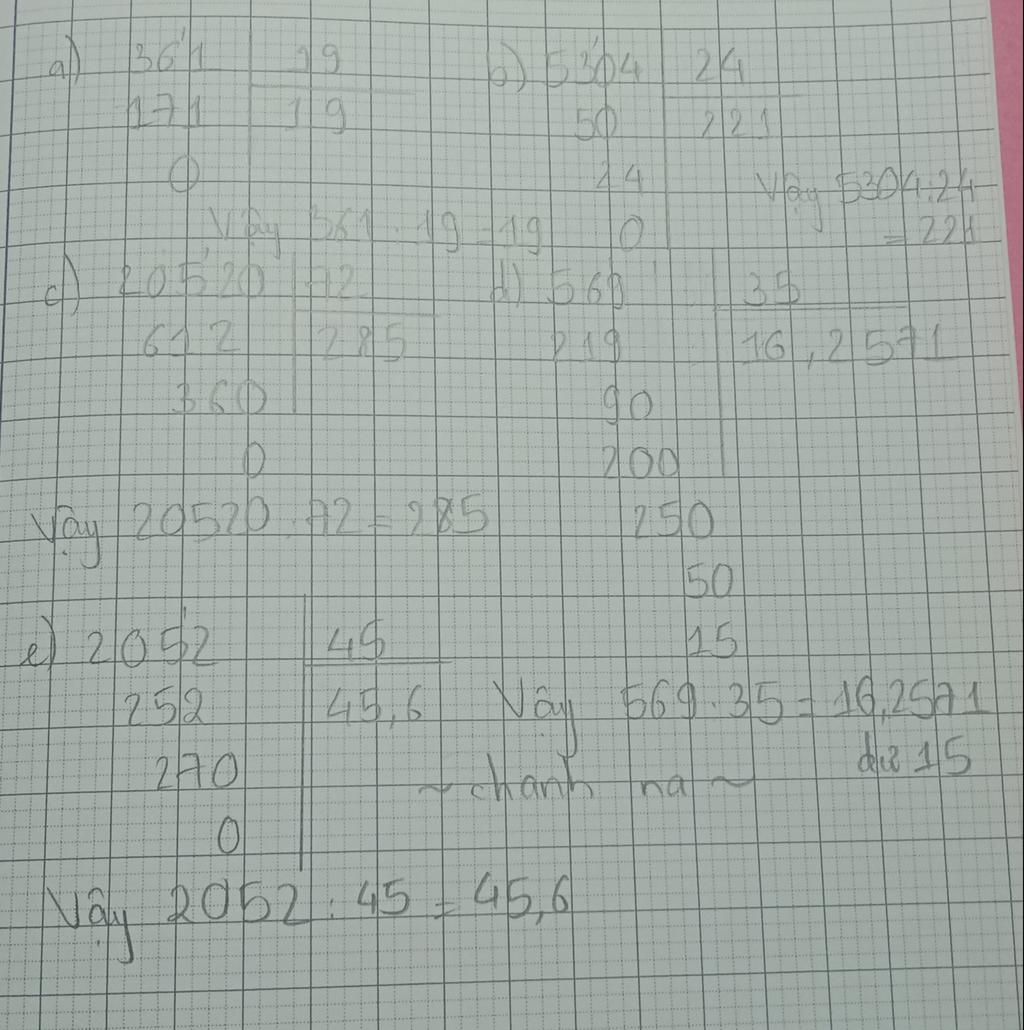 a) 361 19
171 19
0
Vậy 361 : 19 = 19
b) 5304 24
50 221
24
0
Vậy 5304:24
= 221
c) 20520 72
612 285
360
0
Vậy 20520 : 72 = 285
d) 569 35
219 16,2571
90
200
250
50
15
Vậy 569 : 35 = 16,2571
dư 15
e) 2052 45
252 45,6
270
0
~ chanh na ~
Vậy 2052 : 45 = 45,6